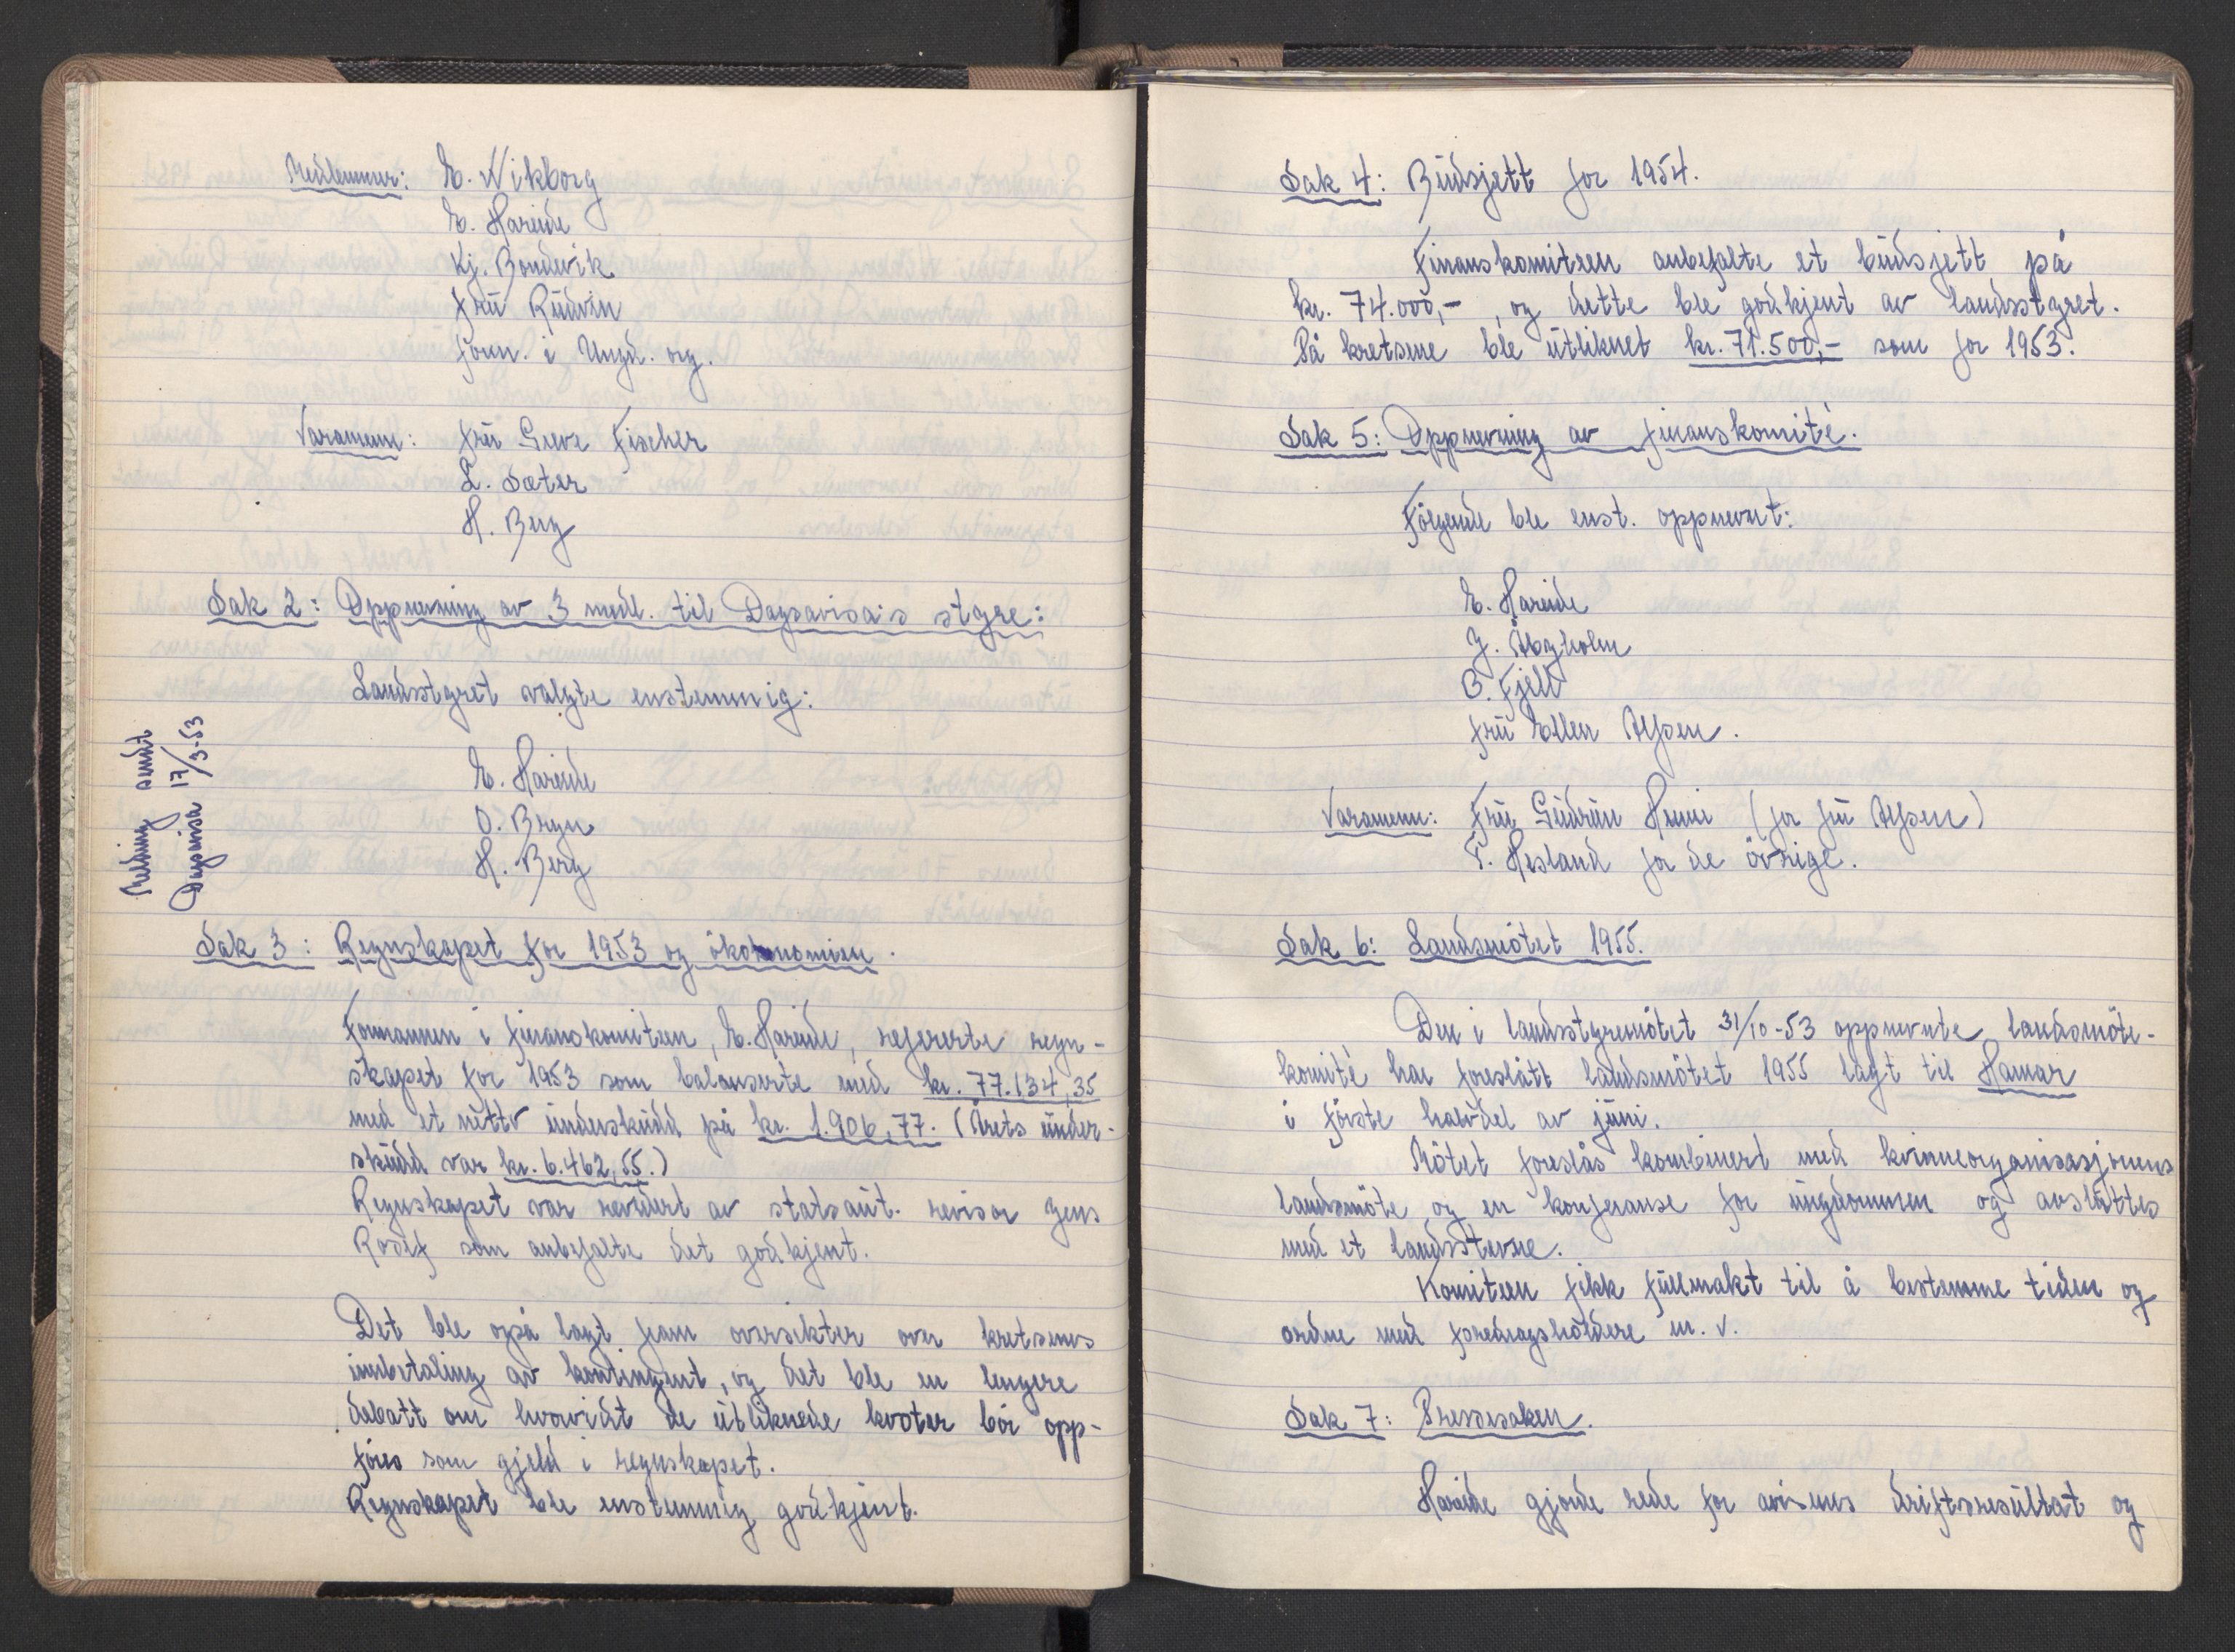 Medlemmer: E. Wikborg
E. Hareide
Kj. Bondevik
Fru Rudvin
Form. i Ungd. org.
Varamenn: Fru Greve Fischer
L. Sæter
H. Berg
Sak 2: Oppnevning av 3 medl. til Dagsavisa's styre:
Landsstyret valgte enstemmig:
E. Hareide
O. Bryn
H. Berg
Melding sendt
Dagsavisa 17/3-53
Sak 3: Regnskapet for 1953 og økonomien.
Formannen i finanskomiteen, E. Hareide, refererte regn-
skapet for 1953 som balanserte med kr. 77.134,35
med et netto underskudd på kr. 1.906,77. (Årets under-
skudd var kr. 6.462,55.)
Regnskapet var revidert av statsaut. revisor Jens
Rodef som anbefalte det godkjent.
Det ble også lagt fram oversikter over kretsenes
innbetaling av kontingent, og det ble en lengere
debatt om hvorvidt de utliknede kvoter bör opp-
föres som gjeld i regnskapet.
Regnskapet ble enstemmig godkjent.
Sak 4: Budsjett for 1954.
Finanskomiteen anbefalte et budsjett på
kr. 74.000,-, og dette ble godkjent av landsstyret.
På kretsene ble utliknet kr. 71.500,- som for 1953.
Sak 5: Oppnevning av finanskomité.
Fölgende ble enst. oppnevnt:
E. Hareide
J. Åbyholm
O. Fjell
Fru Ellen Alfsen.
Varamenn: Fru Gudrun Hemi (for fru Alfsen)
T. Hesland for de övrige.
Sak 6: Landsmötet 1955.
Den i landsstyremötet 31/10-53 oppnevnte landsmöte-
komité har foreslått landsmötet 1955 lagt til Hamar
i förste halvdel av juni.
Mötet foreslås kombinert med kvinneorganisasjonens
landsmöte og en konferanse for ungdommen og avsluttes
med et landsstevne.
Komiteen fikk fullmakt til å bestemme tiden og
ordne med foredragsholdere m.v.
Sak 7: Pressesaken.
Hareide gjorde rede for avisenes driftsresultat og